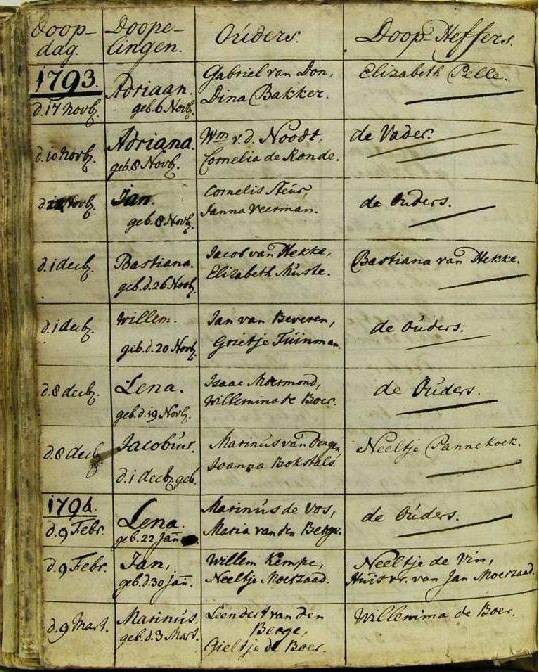 Doop-
dag.
Doope-
lingen.
Ouders.
Doop Heffers.
1793.
d. 17 Novb.
Adriaan.
geb. 6 Novb.
Gabriel van Don,
Dina Bakker.
Elizabeth Pelle.
d. 10 Novb.
Adriana.
geb. 8 Novb.
Wm. v. d. Noodt.
Cornelia de Ronde.
de Vader.
Novb.
Jan.
geb. 8 Novb.
Cornelis
Janna Veerman.
de Ouders.
d. 1 decb.
Bastiana.
geb. d. 26 Novb.
Jacob van Hekke,
Elizabeth
Bastiana van Hekke.
d. 1 decb.
Willem.
geb. d. 20 Novb.
Jan van Beveren,
Grietje Tuinman,
de Ouders.
d. 8 decb.
Lena.
geb. d. 19 Novb.
Isaac Moermond,
Willemina de Boer.
de Ouders.
d. 8 decb.
Jacobus.
d. 1 decb. geb.
Marinus van Dongen
Joanna
Neeltje Pannekoek.
1794.
d. 9 Febr.
Lena.
geb. 22 Jan.
Marinus de Vos,
Maria van den Berge.
de Ouders.
d. 9 Febr.
Jan,
geb. d. 30 Jan.
Willem Kempe,
Neeltje Moerzaad.
Neeltje de Vin,
Huisvr. van Jan Moerzaad.
d. 9 Mart.
Marinus.
geb. d. 3 Mart.
Leendert van den
Berge,
Pieltje de Boer.
Willemina de Boer.